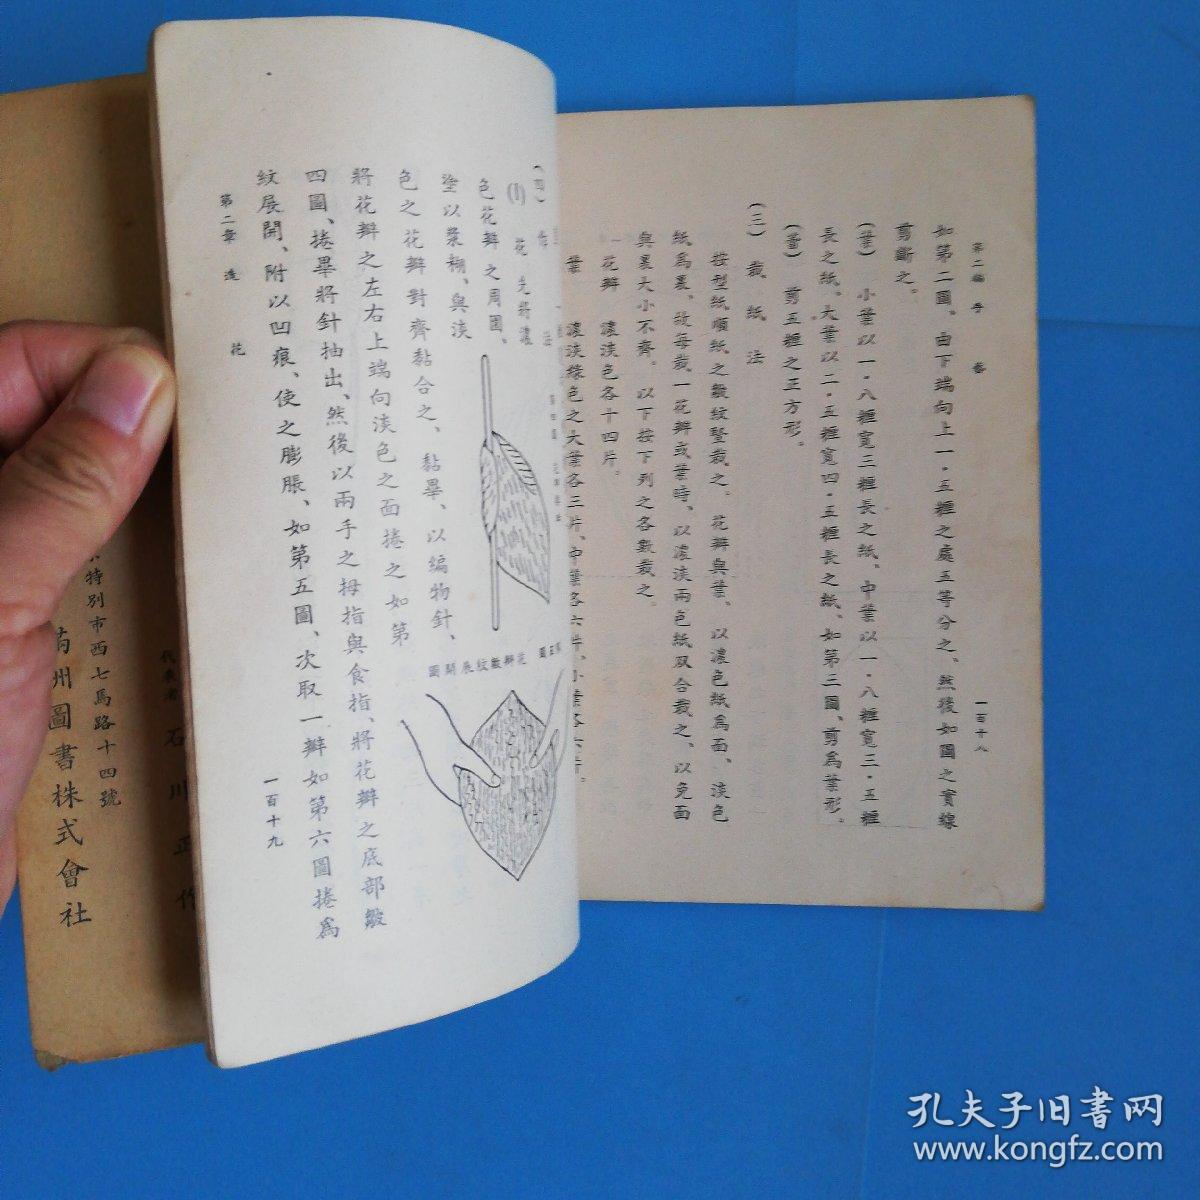 第二編 手 芸
一百十八
如第二圖。由下端向上一·五糎之處五等分之、然後如圖之實線
剪斷之。
(葉) 小葉以一·八糎寬三糎長之紙、中葉以一·八糎寬三·五糎
長之紙。大葉以二·五糎寬四·五糎長之紙、如第三圖、剪爲葉形。
剪五糎之正方形。
(三) 裁紙法
按型紙順紙之皺紋豎裁之。花瓣與葉、以濃色紙爲面、淡色
紙爲裏、故每裁一花瓣或葉時、以濃淡兩色紙双合裁之、以免面
與裏大小不齊。以下按下列之各數裁之。
花瓣 濃淡色各十四片。
葉 濃淡綠色之大葉各三片、中葉各六片、小葉各六片。
(四)
(1) 花 先將濃
色花瓣之周圍、
塗以漿糊、與淡
色之花瓣對齊黏合之、黏畢、以編物針、
將花瓣之左右上端向淡色之面捲之如第
四圖、捲畢將針抽出、然後以兩手之拇指與食指、將花瓣之底部皺
紋展開、附以凹痕、使之膨脹、如第五圖、次取一瓣如第六圖捲爲
第二章 造 花
一百十九
圖開展紋皺瓣花 圖五
特別市西七馬路十四號
滿州圖書株式會社
代表者 石川正作
孔夫子旧书网
www.kongfz.com